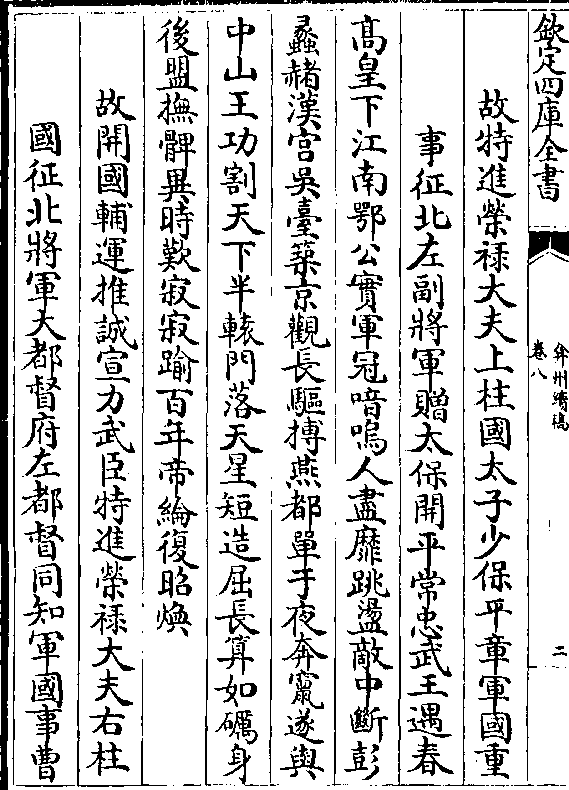 欽定四庫全書
弇州續稿
卷八
二
故特進榮祿大夫上柱國太子少保平章軍國重
事征北左副將軍贈太保開平常忠武王遇春
高皇下江南鄂公實軍冠喑嗚人盡靡跳盪敵中斷彭
蠡赭漢宫吳臺築京觀長驅搏燕都單于夜奔竄遂與
中山王功割天下半轅門落天星短造屈長算如礪身
後盟撫髀異時歎寂寂踰百年帝綸復昭煥
故開國輔運推誠宣力武臣特進榮祿大夫右柱
國征北將軍大都督府左都督同知軍國事曹